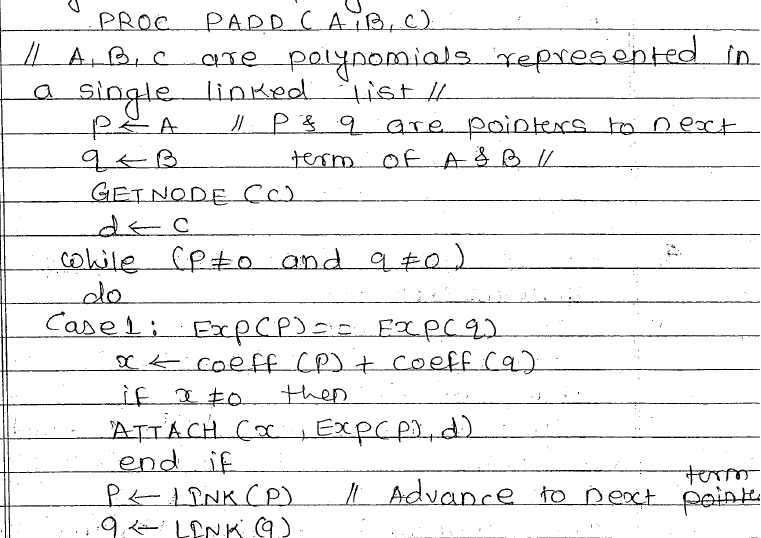 PROC PADD (A,B,C)
// A, B, C are polynomials represented in
a single linked list //
p ← A // P & q are pointers to next
q ← B term OF A & B //
GETNODE (C)
d ← C
while (P≠0 and q ≠0)
do
Case1: Exp(P) == Exp(q)
x ← coeff (P) + coeff (q)
if x ≠0 then
ATTACH (x , Exp(P), d)
end if
term
P ← LINK (P) // Advance to next pointe
q ← LINK (q)